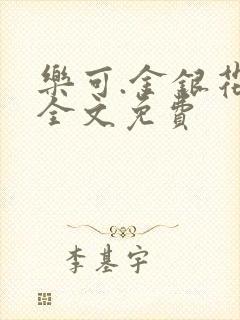 樂可.金銀花
全文免費
李基宇